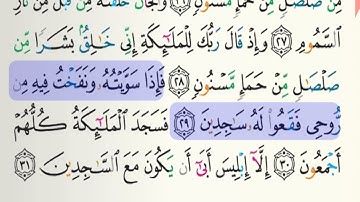 مِّن صَلْصَٰلٍ مِّنْ حَمَإٍ مَّسْنُونٍ ٢٦ وَالْجَانَّ خَلَقْنَٰهُ مِن قَبْلُ مِن نَّارِ
السَّمُومِ ٢٧ وَإِذْ قَالَ رَبُّكَ لِلْمَلَٰٓئِكَةِ إِنِّي خَٰلِقٌۢ بَشَرًا مِّن
صَلْصَٰلٍ مِّنْ حَمَإٍ مَّسْنُونٍ ٢٨ فَإِذَا سَوَّيْتُهُۥ وَنَفَخْتُ فِيهِ مِن
رُّوحِي فَقَعُوا۟ لَهُۥ سَٰجِدِينَ ٢٩ فَسَجَدَ الْمَلَٰٓئِكَةُ كُلُّهُمْ
أَجْمَعُونَ ٣٠ إِلَّآ إِبْلِيسَ أَبَىٰٓ أَن يَكُونَ مَعَ السَّٰجِدِينَ ٣١